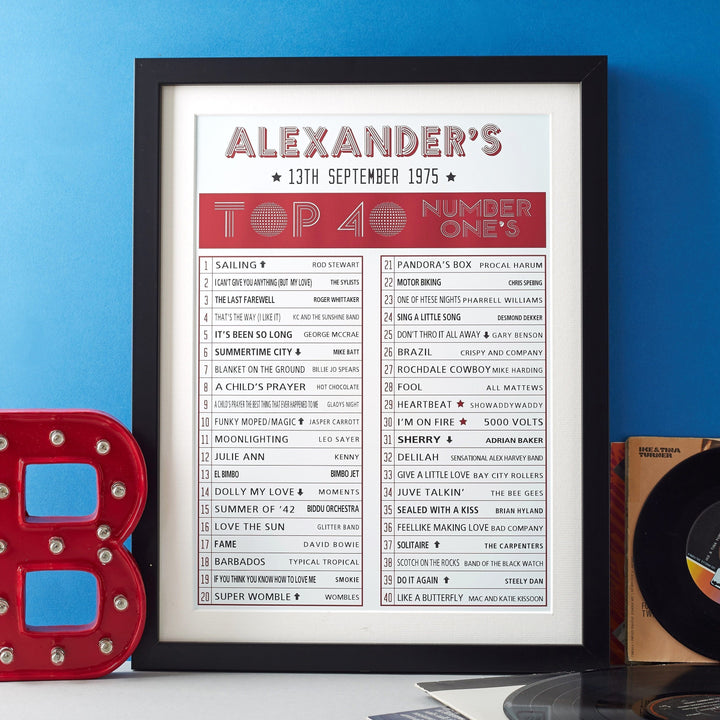 ALEXANDER'S
★ 13TH SEPTEMBER 1975 ★
TOP 40 NUMBER ONE'S
1 SAILING ⬆ ROD STEWART
2 I CAN'T GIVE YOU ANYTHING (BUT MY LOVE) THE SYLISTS
3 THE LAST FAREWELL ROGER WHITTAKER
4 THAT'S THE WAY (I LIKE IT) KC AND THE SUNSHINE BAND
5 IT'S BEEN SO LONG GEORGE MCCRAE
6 SUMMERTIME CITY ⬇ MIKE BATT
7 BLANKET ON THE GROUND BILLIE JO SPEARS
8 A CHILD'S PRAYER HOT CHOCOLATE
9 A CHILD'S PRAYER THE BEST THING THAT EVER HAPPENED TO ME GLADYS NIGHT
10 FUNKY MOPED/MAGIC ⬆ JASPER CARROTT
11 MOONLIGHTING LEO SAYER
12 JULIE ANN KENNY
13 EL BIMBO BIMBO JET
14 DOLLY MY LOVE ⬇ MOMENTS
15 SUMMER OF '42 BIDDU ORCHESTRA
16 LOVE THE SUN GLITTER BAND
17 FAME DAVID BOWIE
18 BARBADOS TYPICAL TROPICAL
19 IF YOU THINK YOU KNOW HOW TO LOVE ME SMOKIE
20 SUPER WOMBLE ⬆ WOMBLES
21 PANDORA'S BOX PROCAL HARUM
22 MOTOR BIKING CHRIS SPEBING
23 ONE OF HTESE NIGHTS PHARRELL WILLIAMS
24 SING A LITTLE SONG DESMOND DEKKER
25 DON'T THRO IT ALL AWAY ⬇ GARY BENSON
26 BRAZIL CRISPY AND COMPANY
27 ROCHDALE COWBOY MIKE HARDING
28 FOOL ALL MATTEWS
29 HEARTBEAT ★ SHOWADDYWADDY
30 I'M ON FIRE ★ 5000 VOLTS
31 SHERRY ⬇ ADRIAN BAKER
32 DELILAH SENSATIONAL ALEX HARVEY BAND
33 GIVE A LITTLE LOVE BAY CITY ROLLERS
34 JUVE TALKIN' THE BEE GEES
35 SEALED WITH A KISS BRIAN HYLAND
36 FEELLIKE MAKING LOVE BAD COMPANY
37 SOLITAIRE ⬆ THE CARPENTERS
38 SCOTCH ON THE ROCKS BAND OF THE BLACK WATCH
39 DO IT AGAIN ⬆ STEELY DAN
40 LIKE A BUTTERFLY MAC AND KATIE KISSOON
B
IKE & TINA
TURNER